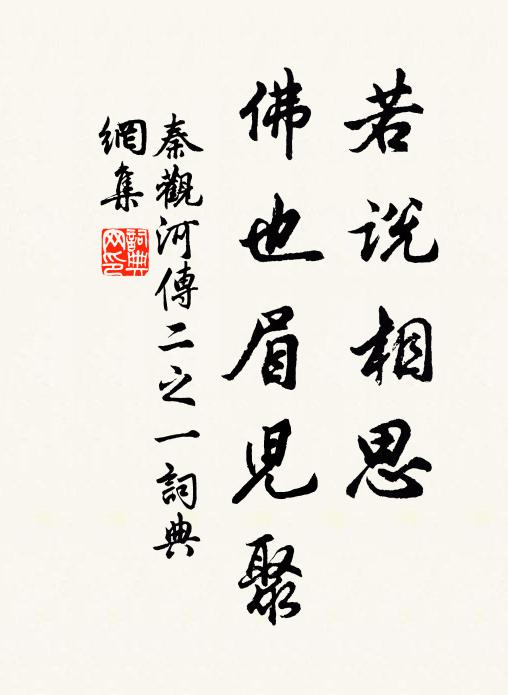 若説相思
佛也眉児聚
秦觀河傳二之一詞典
網集
詞典
网印